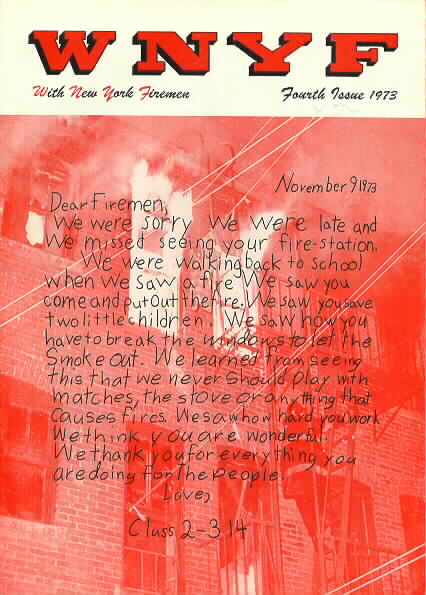 WNYF
With New York Firemen Fourth Issue 1973
November 9 1973
Dear Firemen,
We were sorry We were late and
We missed seeing your fire-station.
We were walking back to school
when we saw a fire We saw you
come and put out the fire. We saw you save
two little children. We saw how you
have to break the windows to let the
smoke out. We learned from seeing
this that we never should play with
matches, the stove or anything that
causes fires. We saw how hard you work
We think you are wonderful.
We thank you for everything you
are doing for the people.
Love,
Class 2-314